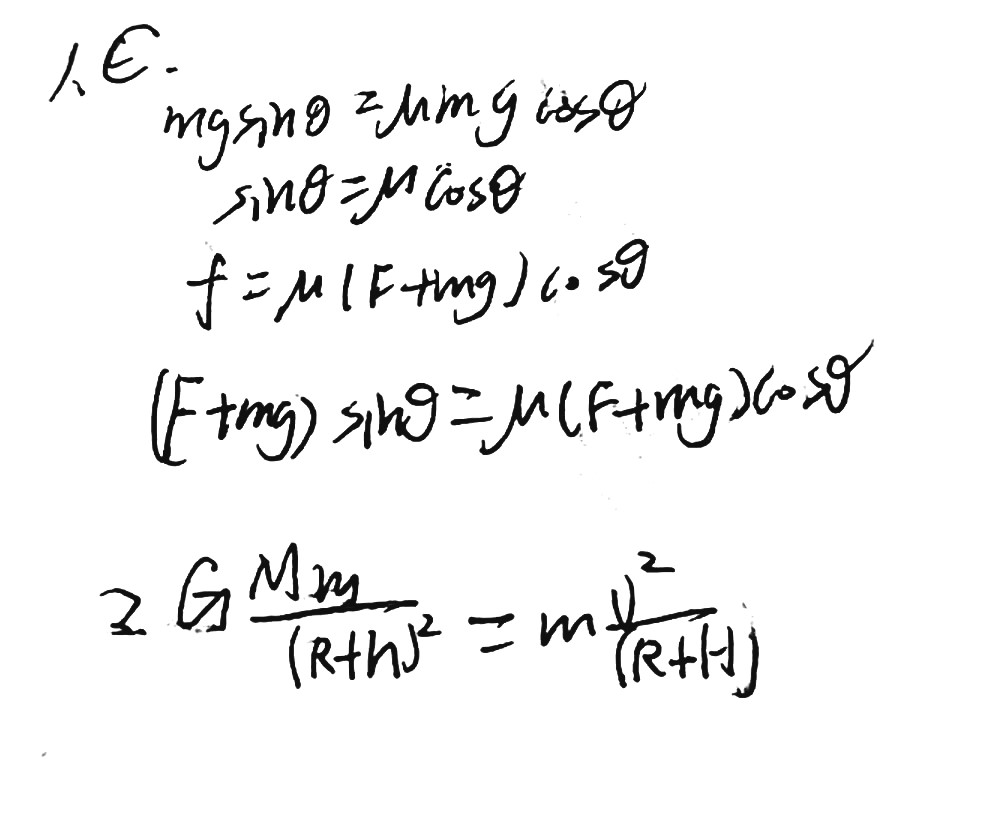 1. C.
mgsinθ=μmgcosθ
sinθ=μcosθ
f=μ(F+mg)cosθ
(F+mg)sinθ=μ(F+mg)cosθ
2 G\frac{Mm}{(R+h)^2}=m\frac{v^2}{(R+H)}